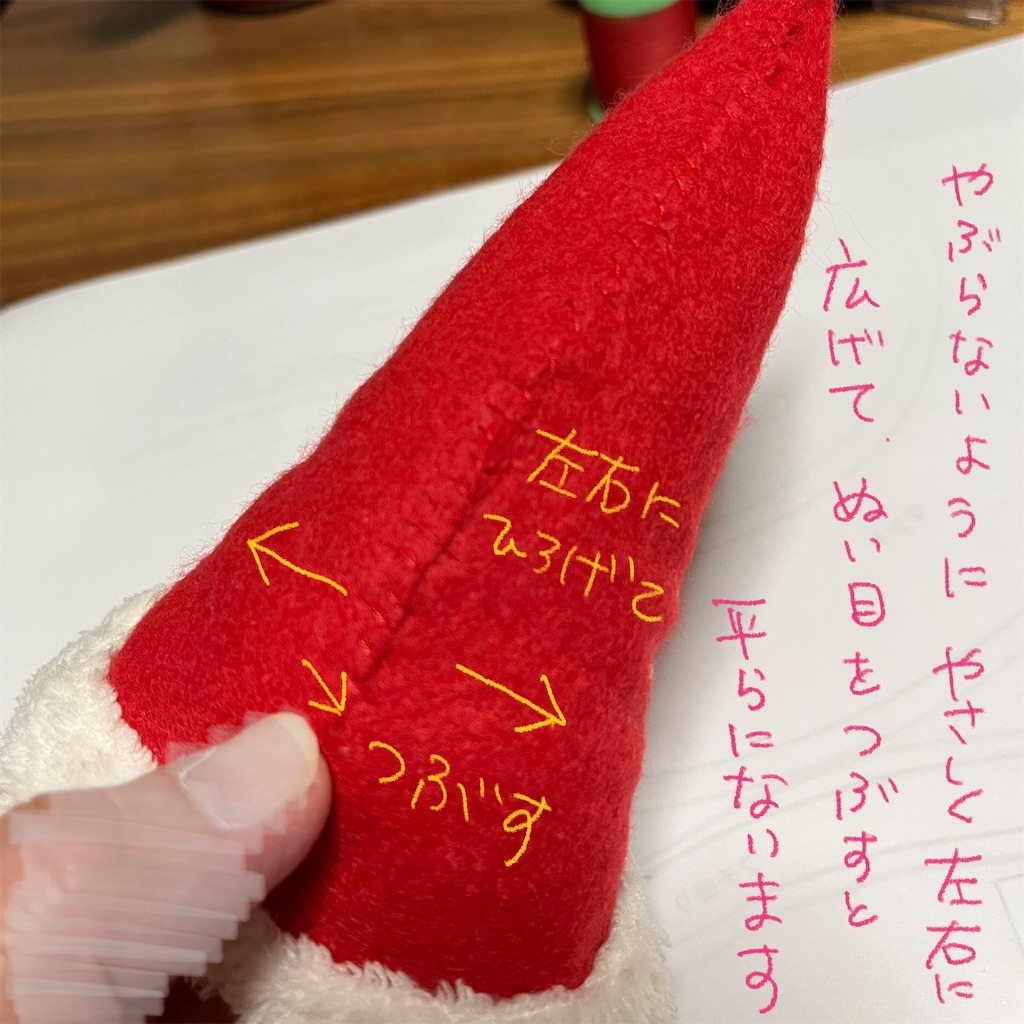 やぶらないように やさしく 左右に
広げて、ぬい目をつぶすと
平らになります
左右に
ひろげて
つぶす